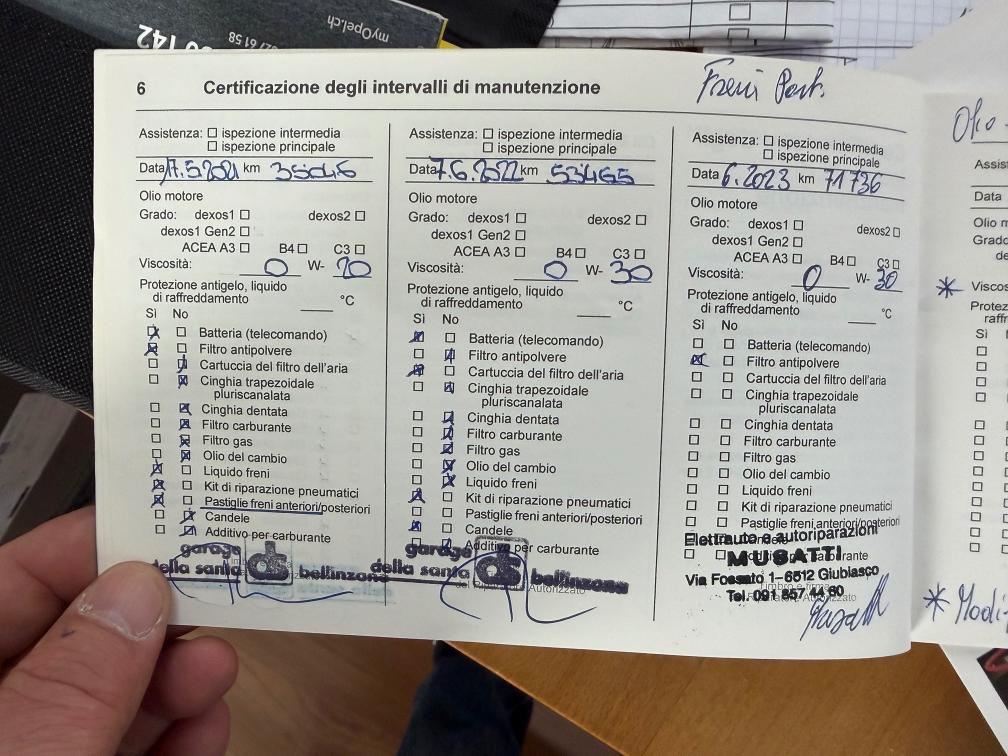 myOpel.ch
142
827 61 58
6 Certificazione degli intervalli di manutenzione
Freni Post.
Assistenza: ☐ ispezione intermedia
☐ ispezione principale
Data 17.5.2021 km
Olio motore
Grado: dexos1 ☐ dexos2 ☐
dexos1 Gen2 ☐
ACEA A3 ☐ B4 ☐ C3 ☐
Viscosità: 0 W-
Protezione antigelo, liquido
di raffreddamento °C
Sì No
Batteria (telecomando)
Filtro antipolvere
Cartuccia del filtro dell'aria
Cinghia trapezoidale
pluriscanalata
Cinghia dentata
Filtro carburante
Filtro gas
Olio del cambio
Liquido freni
Kit di riparazione pneumatici
Pastiglie freni anteriori/posteriori
Candele
Additivo per carburante
garage
della santa ds bellinzona
Assistenza: ☐ ispezione intermedia
☐ ispezione principale
Data 7.6.2022 km 53465
Olio motore
Grado: dexos1 ☐ dexos2 ☐
dexos1 Gen2 ☐
ACEA A3 ☐ B4 ☐ C3 ☐
Viscosità: 0 W- 30
Protezione antigelo, liquido
di raffreddamento °C
Sì No
Batteria (telecomando)
Filtro antipolvere
Cartuccia del filtro dell'aria
Cinghia trapezoidale
pluriscanalata
Cinghia dentata
Filtro carburante
Filtro gas
Olio del cambio
Liquido freni
Kit di riparazione pneumatici
Pastiglie freni anteriori/posteriori
Candele
Additivo per carburante
garage
della santa ds bellinzona
Riparatore Autorizzato
Assistenza: ☐ ispezione intermedia
☐ ispezione principale
Data 6.2023 km 71736
Olio motore
Grado: dexos1 ☐ dexos2 ☐
dexos1 Gen2 ☐
ACEA A3 ☐ B4 ☐ C3 ☐
Viscosità: 0 W- 30
Protezione antigelo, liquido
di raffreddamento °C
Sì No
Batteria (telecomando)
Filtro antipolvere
Cartuccia del filtro dell'aria
Cinghia trapezoidale
pluriscanalata
Cinghia dentata
Filtro carburante
Filtro gas
Olio del cambio
Liquido freni
Kit di riparazione pneumatici
Pastiglie freni anteriori/posteriori
Elettrauto e autoriparazioni
MUSATTI
Via Fossato 1-6512 Giubiasco
Tel. 091 857 44 60
Olio -
Assis
Data
Olio m
Grado
de
* Viscos
Protez
raffr
Sì
* Modi